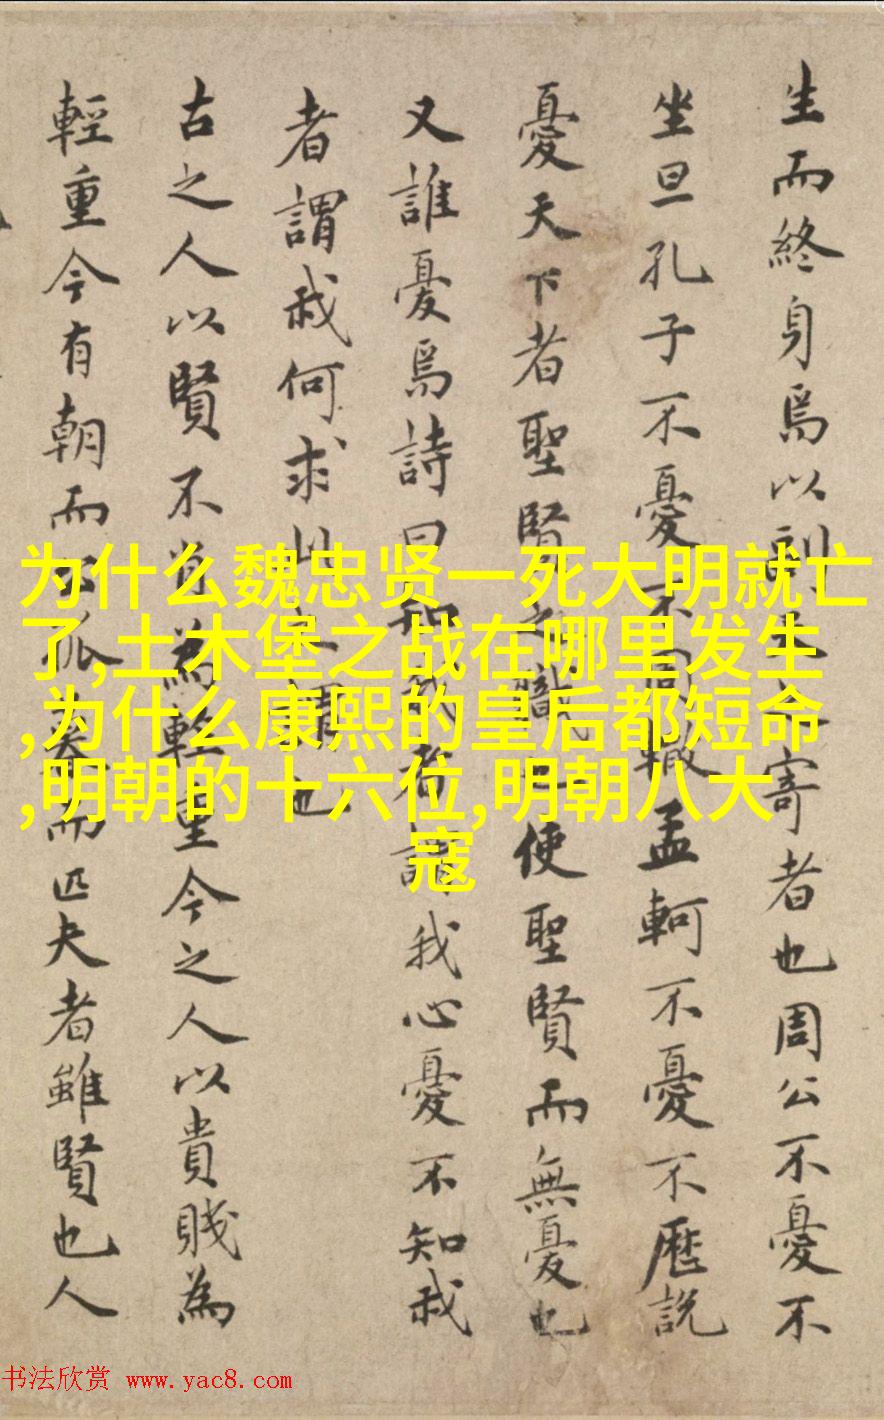 生而終身焉以副寄者也周公不憂不
坐旦孔子不憂不轍孟軻不憂不歷說
憂天下者聖賢之職也使聖賢而無憂也
又誰憂焉詩曰知我者謂我心憂不知我
者謂我何求此之謂也
古之人以賢不肖為輕重今之人以貴賤為
輕重今有朝而公孤暮而匹夫者雖賢也人
为什么魏忠贤一死大明就亡
了,土木堡之战在哪里发生
,为什么康熙的皇后都短命
,明朝的十六位,明朝八大
寇
书法欣赏 www.yac8.com